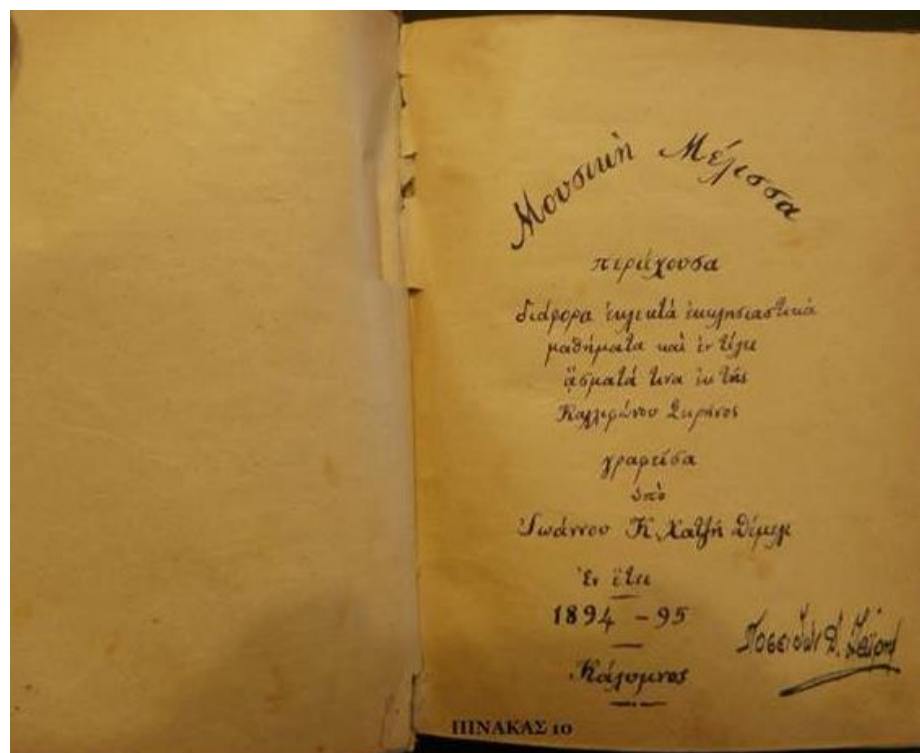 Μουσικὴ Μέλισσα
περιέχουσα
διάφορα ἐκλεκτὰ ἐκκλησιαστικὰ
μαθήματα καὶ ἐν τέλει
ᾄσματά τινα ἐκ τῆς
Καλλιφώνου Σειρῆνος
γραφεῖσα
ὑπὸ
Ἰωάννου Κ. Χατζῆ
Ἐν ἔτει
1894 – 95
Κάλυμνος
Ποσειδῶν Δ.
ΠΙΝΑΚΑΣ 10